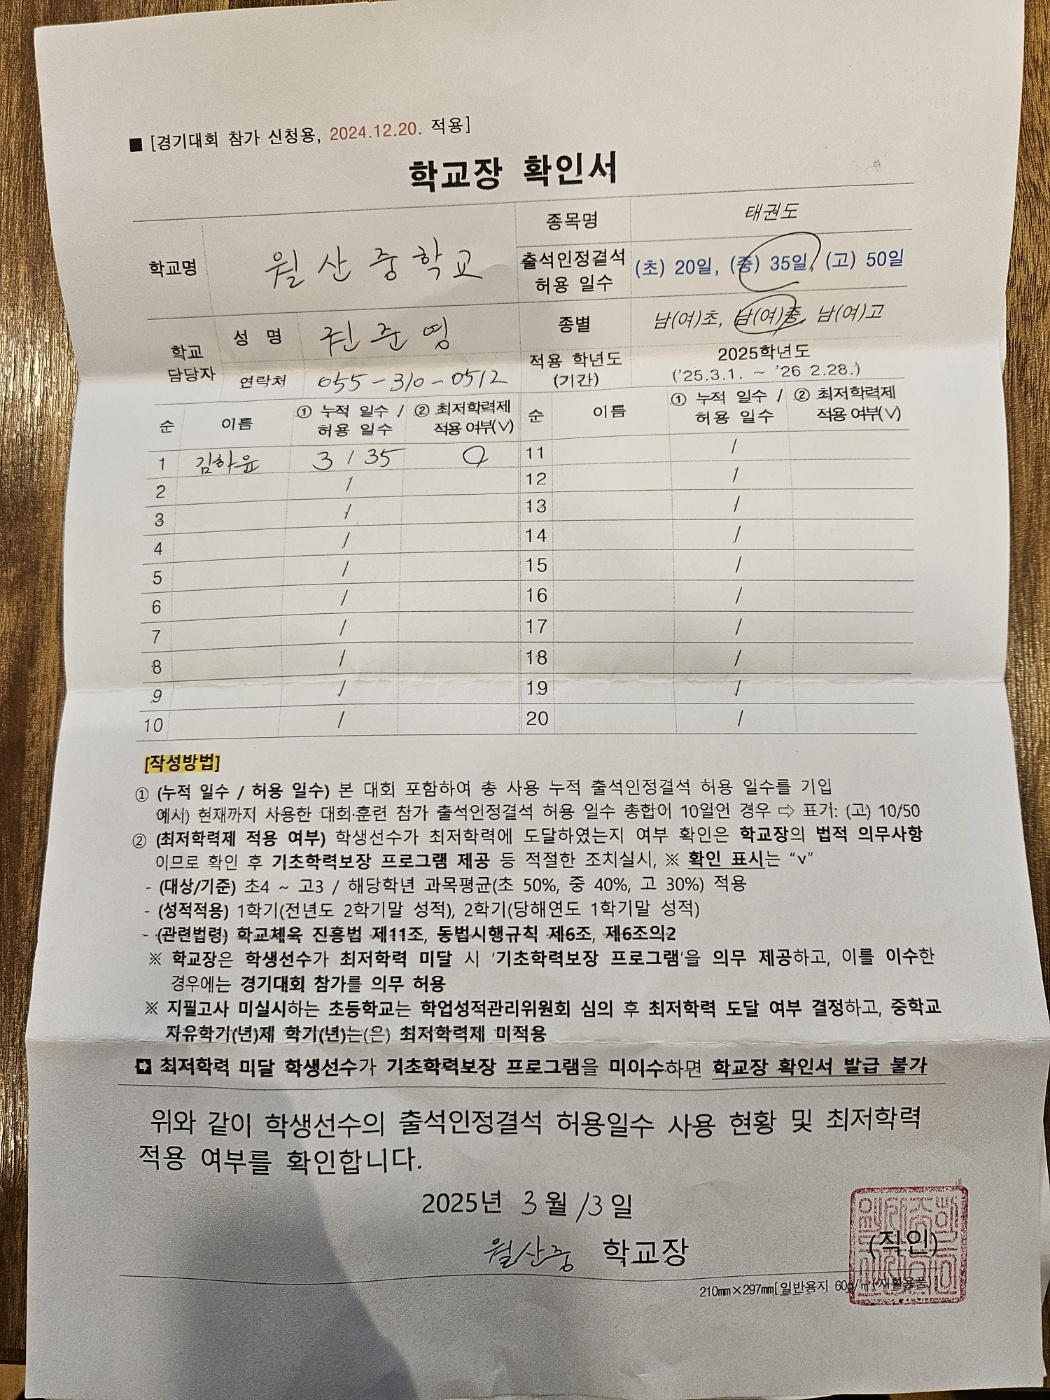 ■ [경기대회 참가 신청용, 2024.12.20. 적용]
학교장 확인서
학교명 월산중학교
종목명 태권도
출석인정결석 허용 일수 (초) 20일, (중) 35일, (고) 50일
학교 담당자 성 명 권준영
종별 남(여)초, 남(여)중, 남(여)고
연락처 055-310-0512
적용 학년도 (기간) 2025학년도 ('25.3.1. ~ '26 2.28.)
순 이름 ① 누적 일수 / 허용 일수 ② 최저학력제 적용 여부(V) 순 이름 ① 누적 일수 / 허용 일수 ② 최저학력제 적용 여부(V)
1 김하윤 3 / 35 O 11 /
2 / 12 /
3 / 13 /
4 / 14 /
5 / 15 /
6 / 16 /
7 / 17 /
8 / 18 /
9 / 19 /
10 / 20 /
[작성방법]
① (누적 일수 / 허용 일수) 본 대회 포함하여 총 사용 누적 출석인정결석 허용 일수를 기입
예시) 현재까지 사용한 대회·훈련 참가 출석인정결석 허용 일수 총합이 10일언 경우 ⇨ 표기: (고) 10/50
② (최저학력제 적용 여부) 학생선수가 최저학력에 도달하였는지 여부 확인은 학교장의 법적 의무사항
이므로 확인 후 기초학력보장 프로그램 제공 등 적절한 조치실시, ※ 확인 표시는 "v"
- (대상/기준) 초4 ~ 고3 / 해당학년 과목평균(초 50%, 중 40%, 고 30%) 적용
- (성적적용) 1학기(전년도 2학기말 성적), 2학기(당해연도 1학기말 성적)
- (관련법령) 학교체육 진흥법 제11조, 동법시행규칙 제6조, 제6조의2
※ 학교장은 학생선수가 최저학력 미달 시 '기초학력보장 프로그램'을 의무 제공하고, 이를 이수한
경우에는 경기대회 참가를 의무 허용
※ 지필고사 미실시하는 초등학교는 학업성적관리위원회 심의 후 최저학력 도달 여부 결정하고, 중학교
자유학기(년)제 학기(년)는(은) 최저학력제 미적용
➡ 최저학력 미달 학생선수가 기초학력보장 프로그램을 미이수하면 학교장 확인서 발급 불가
위와 같이 학생선수의 출석인정결석 허용일수 사용 현황 및 최저학력
적용 여부를 확인합니다.
2025년 3월 13일
월산중 학교장 (직인)
210mm×297mm[일반용지 60g/㎡(재활용품)]